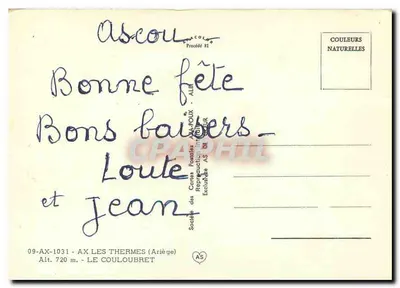 Ascou
Procédé 81
COULEURS
NATURELLES
Bonne fête
Bons baisers -
Loute
et Jean
09-AX-1031 - AX LES THERMES (Ariège)
Alt. 720 m. - LE COULOUBRET
Société des Cartes Postales APA-POUX - ALBI
Reproduction interdite
Exclusivité AS DE CŒUR
AS